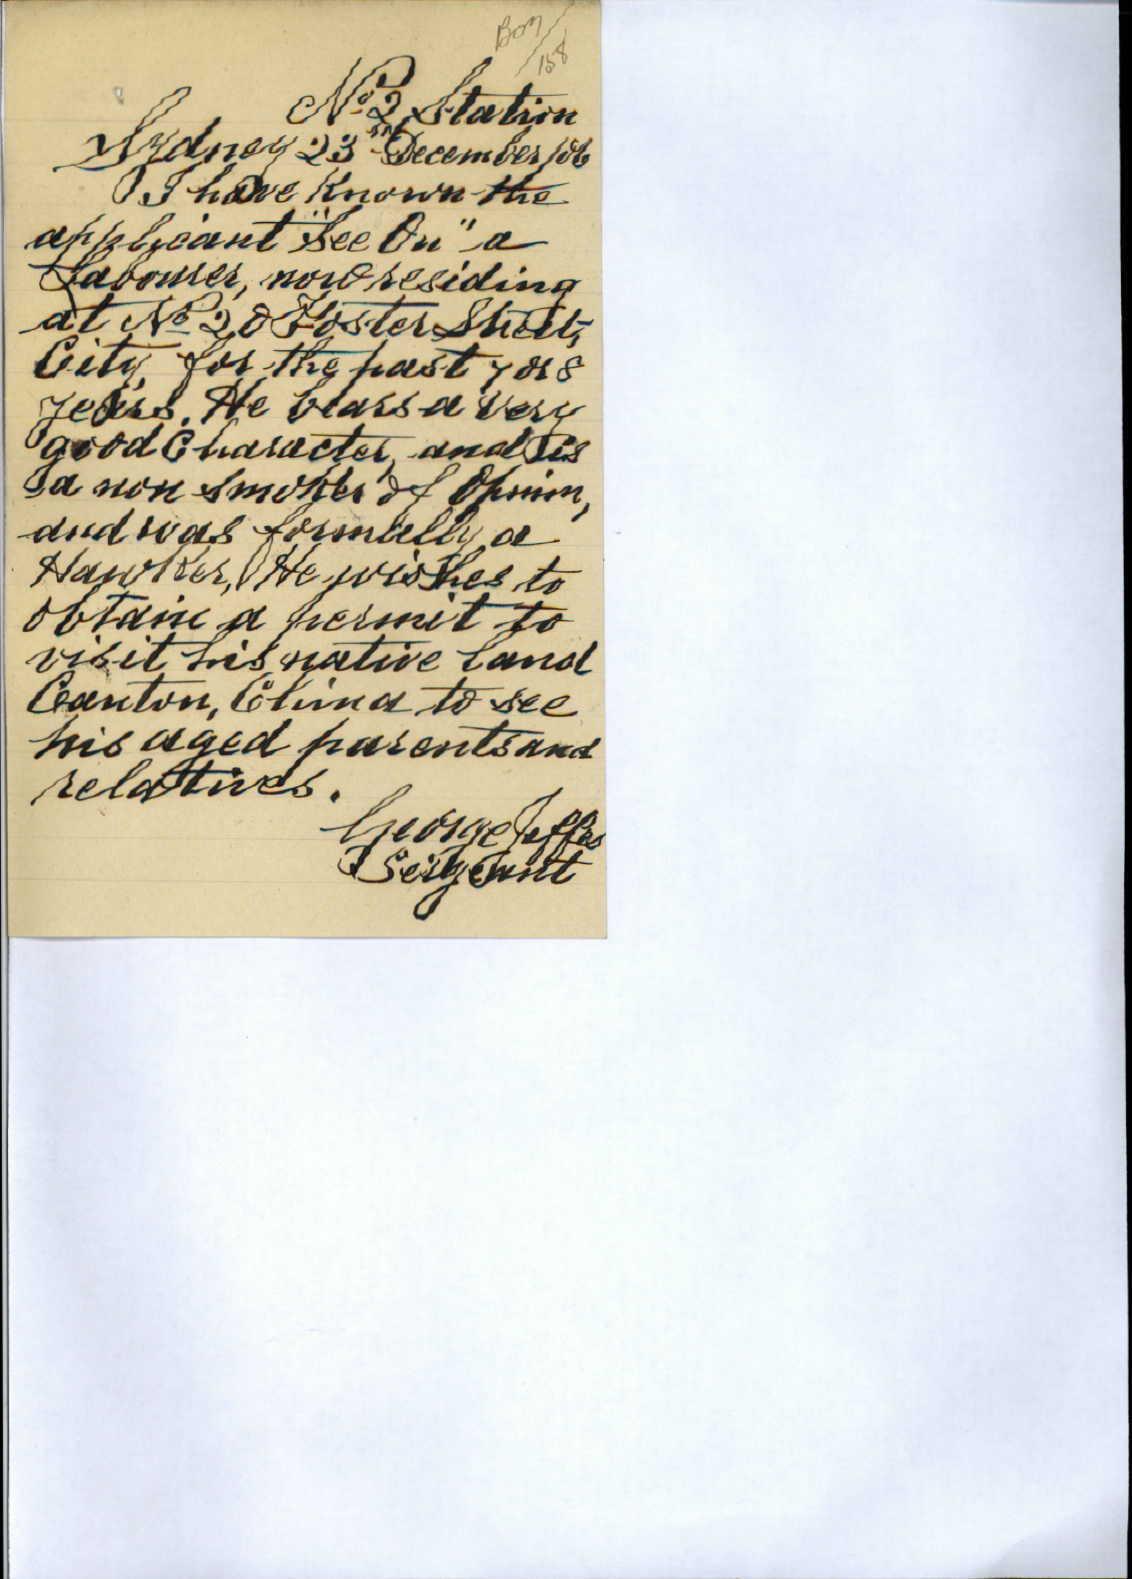 158
No 2 Station
Sydney 23rd December /06
I have Known the
applicant "See On" a
Labourer, now residing
at No 20 Foster Street,
City, for the past 7 or 8
years. He bears a very
good Character, and is
a non smoker of Opium,
and was formally a
Hawker, He wishes to
obtain a permit to
visit his native land
Canton, China to see
his aged parents and
relatives.
George Jeffes
Sergeant